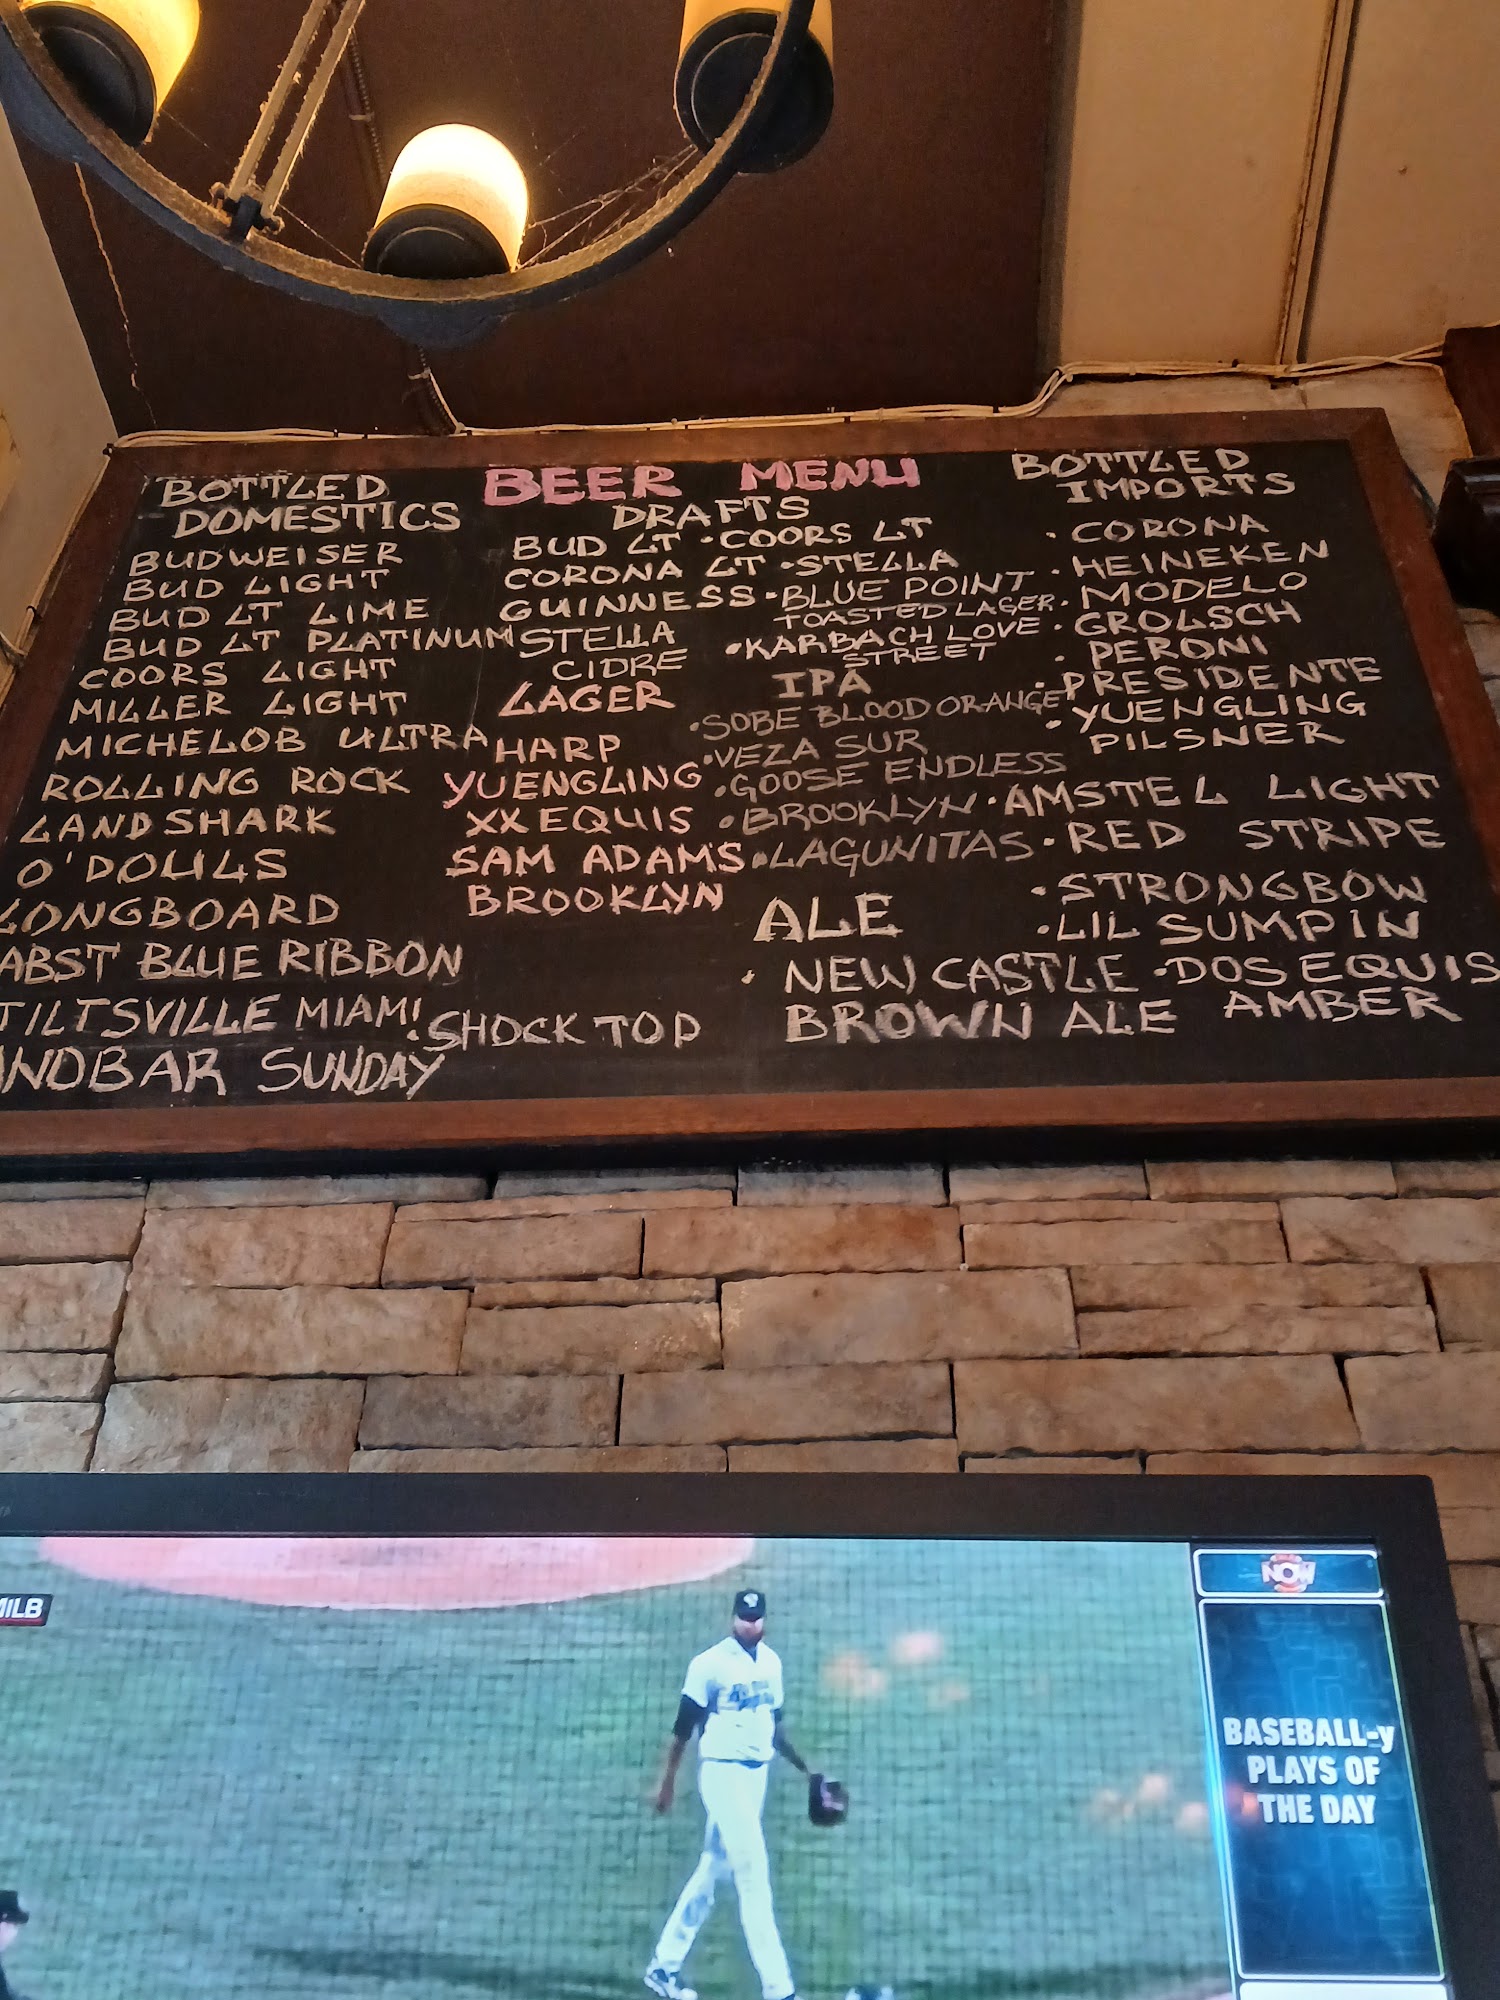 BEER MENU
BOTTLED
DOMESTICS
BUDWEISER
BUD LIGHT
BUD LT LIME
BUD LT PLATINUM
COORS LIGHT
MILLER LIGHT
MICHELOB ULTRA
ROLLING ROCK
LANDSHARK
O'DOULS
LONGBOARD
ABST BLUE RIBBON
TILTSVILLE MIAMI
NOBAR SUNDAY
DRAFTS
BUD LT • COORS LT
CORONA LT • STELLA
GUINNESS • BLUE POINT
TOASTED LAGER
STELLA
CIDRE
• KARBACH LOVE
STREET
LAGER
HARP
YUENGLING
XX EQUIS
SAM ADAMS
BROOKLYN
• SHOCK TOP
IPA
• SOBE BLOOD ORANGE
• VEZA SUR
• GOOSE ENDLESS
• BROOKLYN
• LAGUNITAS
ALE
• NEW CASTLE
BROWN ALE
BOTTLED
IMPORTS
• CORONA
• HEINEKEN
• MODELO
• GROLSCH
• PERONI
• PRESIDENTE
• YUENGLING
• PILSNER
• AMSTEL LIGHT
• RED STRIPE
• STRONGBOW
• LIL SUMPIN
• DOS EQUIS
AMBER
MILB
NOW
BASEBALL-y
PLAYS OF
THE DAY